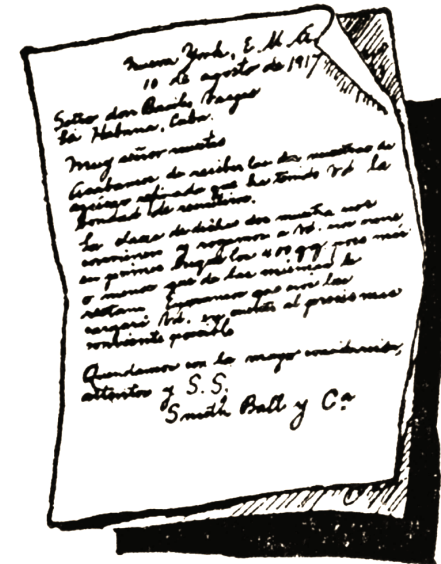 Nueva York, E. U. A.
10 de agosto de 1917
Señor don Basilio Vargas
La Habana, Cuba.
Muy señor nuestro
Acabamos de recibir las dos muestras de
azúcar refinado que ha tenido Vd. la
bondad de remitirnos.
La clase de dichas dos muestras nos
conviene y rogamos a Vd. nos
en primer buque los 400 qq poco más
o menos que de las mismas le
restan. Esperamos que nos las
cargará Vd. en cuenta al precio más
conveniente posible
Quedamos con la mayor consideración,
atentos y S. S.
Smith Ball y Ca